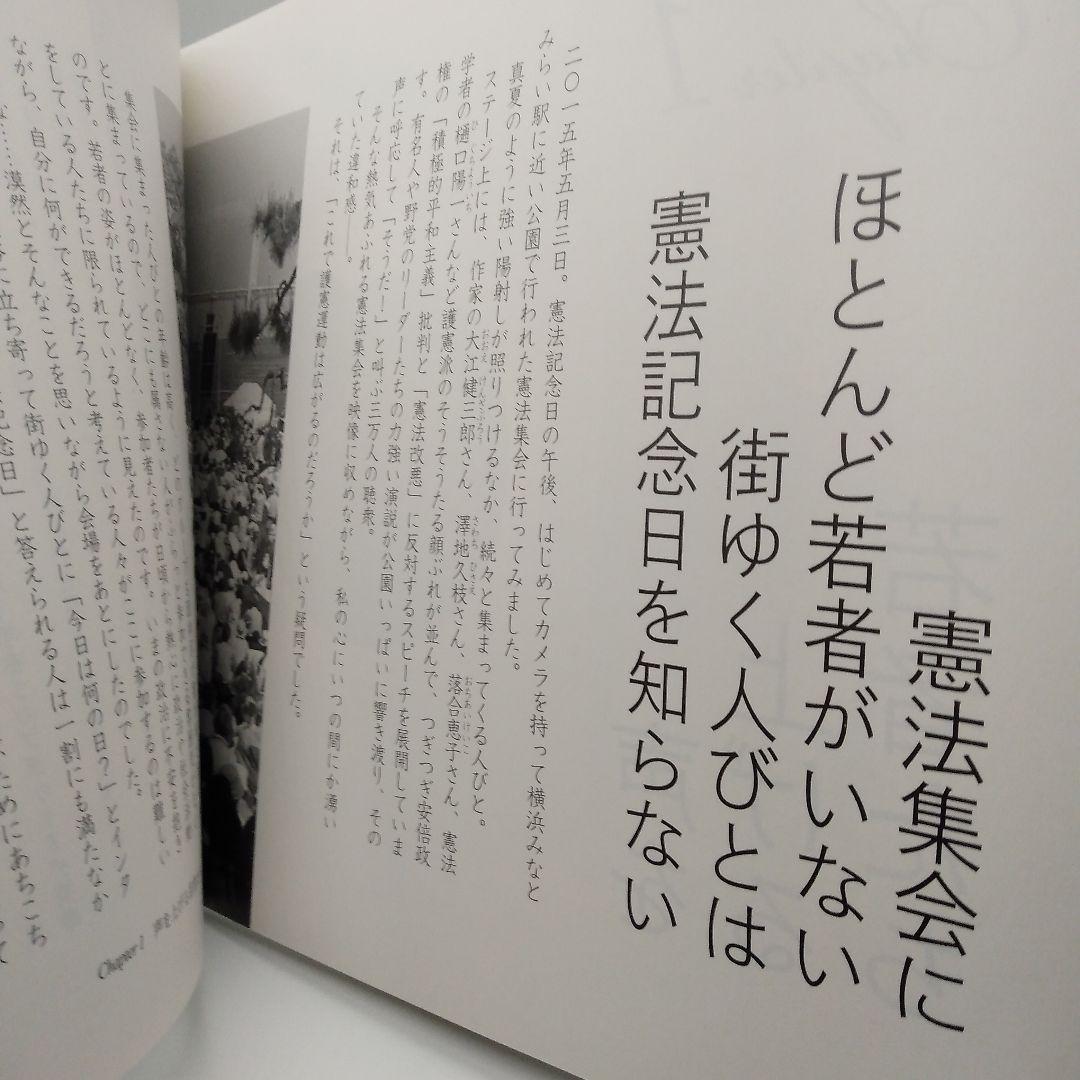 憲法集会に
ほとんど若者がいない
街ゆく人びとは
憲法記念日を知らない
二〇一五年五月三日。憲法記念日の午後、はじめてカメラを持って横浜みなと
みらい駅に近い公園で行われた憲法集会に行ってみました。
真夏のように強い陽射しが照りつけるなか、続々と集まってくる人びと。
ステージ上には、作家の大江健三郎さん、澤地久枝さん、落合恵子さん、憲法
学者の樋口陽一さんなど護憲派のそうそうたる顔ぶれが並んで、つぎつぎ安倍政
権の「積極的平和主義」批判と「憲法改悪」に反対するスピーチを展開していま
す。有名人や野党のリーダーたちの力強い演説が公園いっぱいに響き渡り、その
声に呼応して「そうだ！」と叫ぶ三万人の聴衆。
そんな熱気あふれる憲法集会を映像に収めながら、私の心にいつの間にか湧い
ていた違和感――。
それは、「これで護憲運動は広がるのだろうか」という疑問でした。
集会に集まった人びとの年齢は高く、
とに集まっているので、どこにも属さない人が
のです。若者の姿がほとんどなく、参加者たちが日頃から
をしている人たちに限られているように見えたのです。いまの政治に不安を抱き、
ながら、自分に何ができるだろうと考えている人々がここに参加するのは難しい
な……漠然とそんなことを思いながら会場をあとにしたのでした。
に立ち寄って街ゆく人びとに「今日は何の日？」とインタ
念日」と答えられる人は一割にも満たなか
ためにあちこち
って
Chapter 1